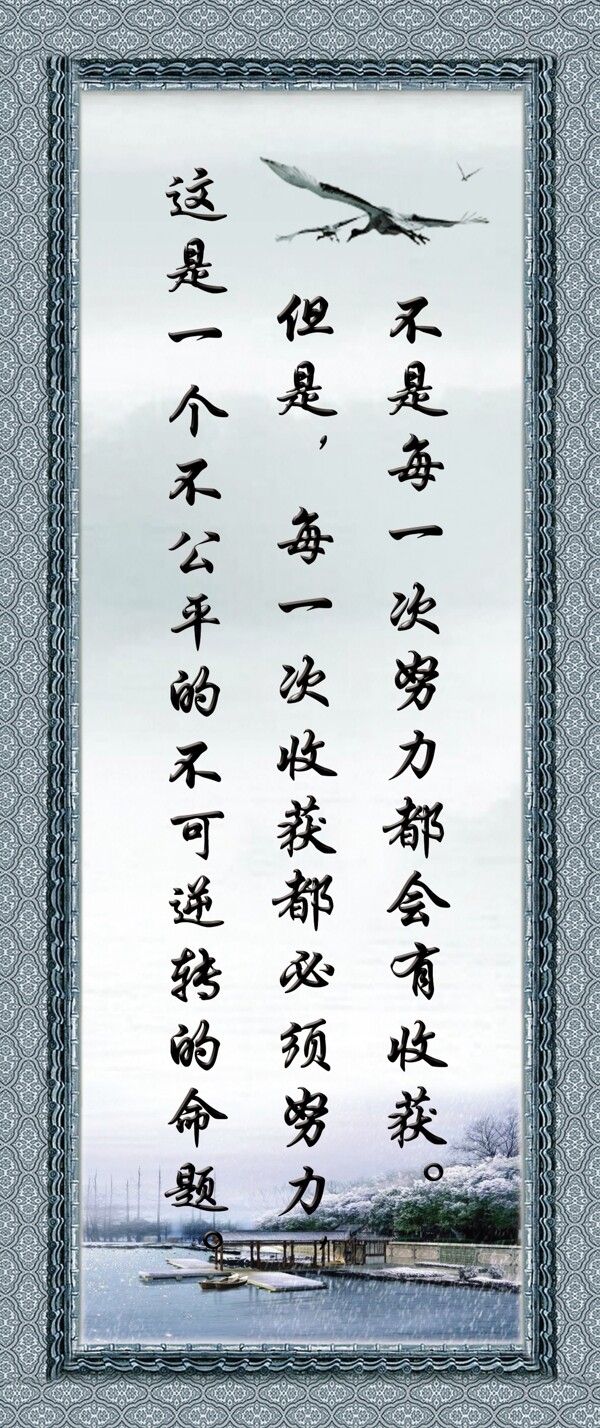 不是每一次努力都会有收获。
但是，每一次收获都必须努力
这是一个不公平的不可逆转的命题。